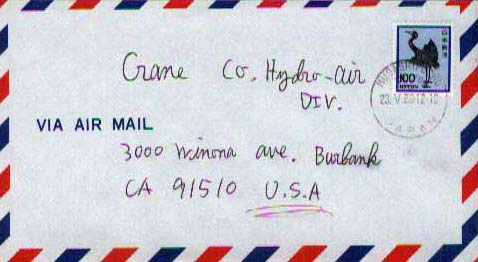 Crane Co. Hydro-air
DIV.
VIA AIR MAIL
3000 Winona ave. Burbank
CA 91510 U.S.A
100
NIPPON
日本郵便
JAPAN